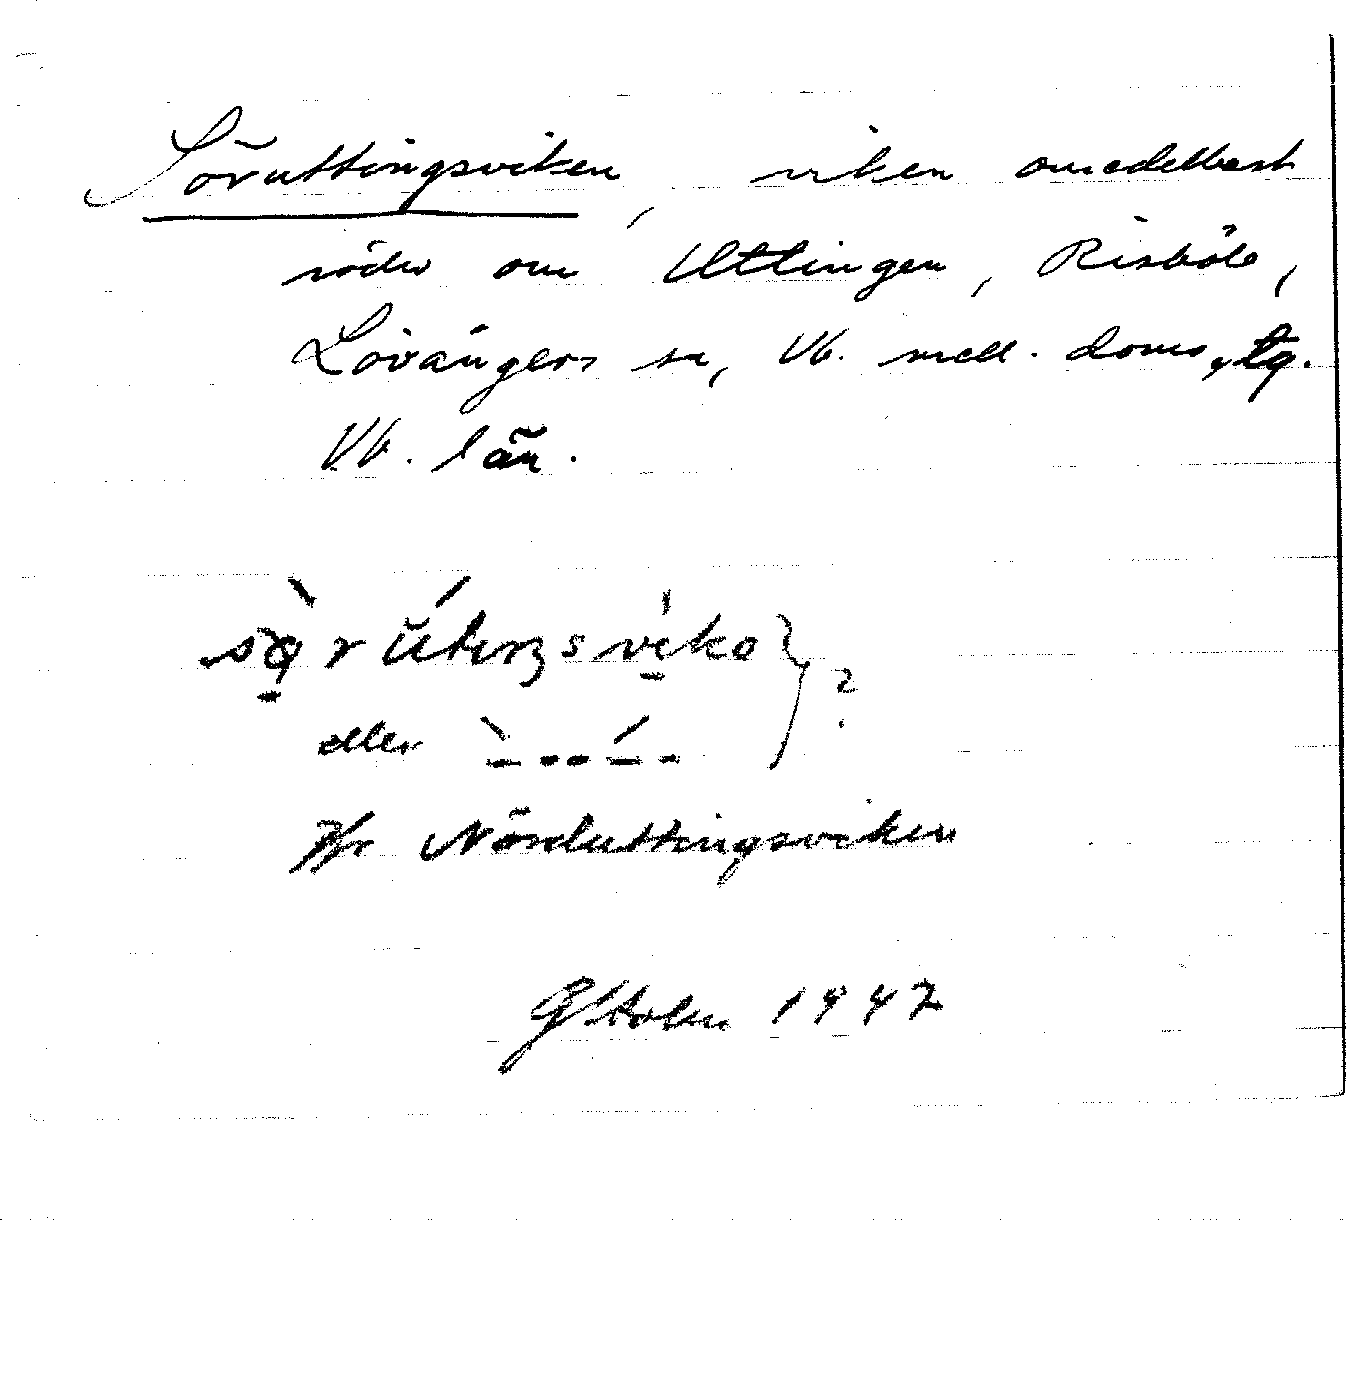 Söruttingsviken, viken omedelbart
söder om Uttingen, Risböle,
Lövångers sn, Vb. mell. doms. tg.
Vb. län.
eller
Jfr Norduttingsviken
GHolm 1947